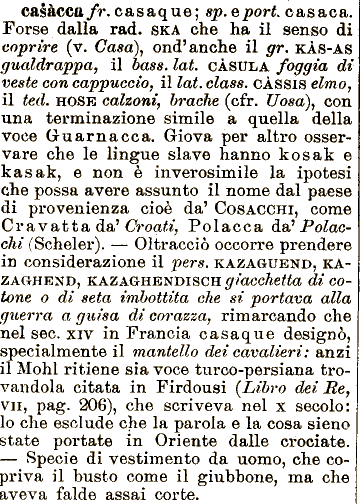 caṡàcca fr. casaque; sp. e port. casaca.
Forse dalla rad. SKA che ha il senso di
coprire (v. Casa), ond'anche il gr. KÀS-AS
gualdrappa, il bass. lat. CÀSULA foggia di
veste con cappuccio, il lat. class. CÀSSIS elmo,
il ted. HOSE calzoni, brache (cfr. Uosa), con
una terminazione simile a quella della
voce Guarnacca. Giova per altro osser-
vare che le lingue slave hanno kosak e
kasak, e non è inverosimile la ipotesi
che possa avere assunto il nome dal paese
di provenienza cioè da' COSACCHI, come
Cravatta da' Croati, Polacca da' Polac-
chi (Scheler). — Oltracciò occorre prendere
in considerazione il pers. KAZAGUEND, KA-
ZAGHEND, KAZAGHENDISCH giacchetta di co-
tone o di seta imbottita che si portava alla
guerra a guisa di corazza, rimarcando che
nel sec. XIV in Francia casaque designò,
specialmente il mantello dei cavalieri: anzi
il Mohl ritiene sia voce turco-persiana tro-
vandola citata in Firdousi (Libro dei Re,
VII, pag. 206), che scriveva nel X secolo:
lo che esclude che la parola e la cosa sieno
state portate in Oriente dalle crociate.
— Specie di vestimento da uomo, che co-
priva il busto come il giubbone, ma che
aveva falde assai corte.